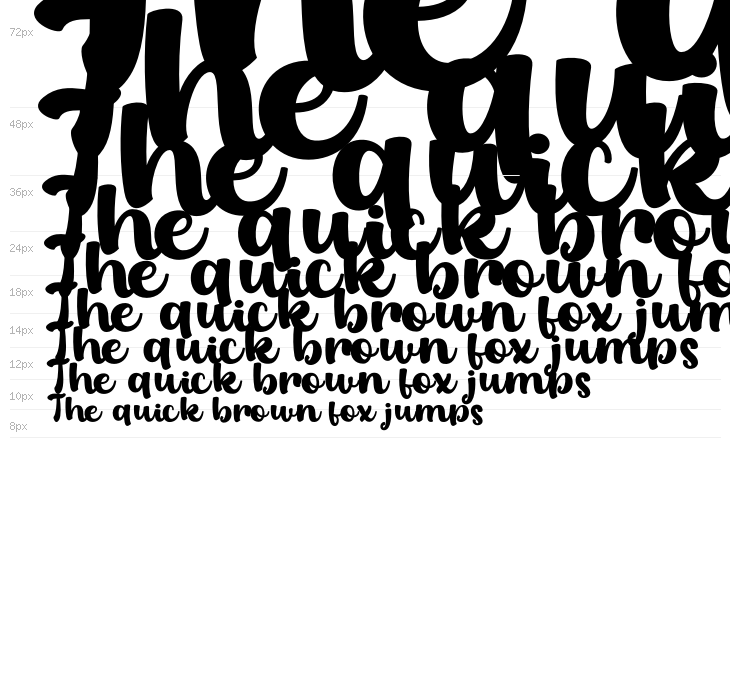 72px The q
48px The qui
36px The quick
24px The quick brow
18px The quick brown fo
14px The quick brown fox jum
12px The quick brown fox jumps
10px The quick brown fox jumps
8px The quick brown fox jumps